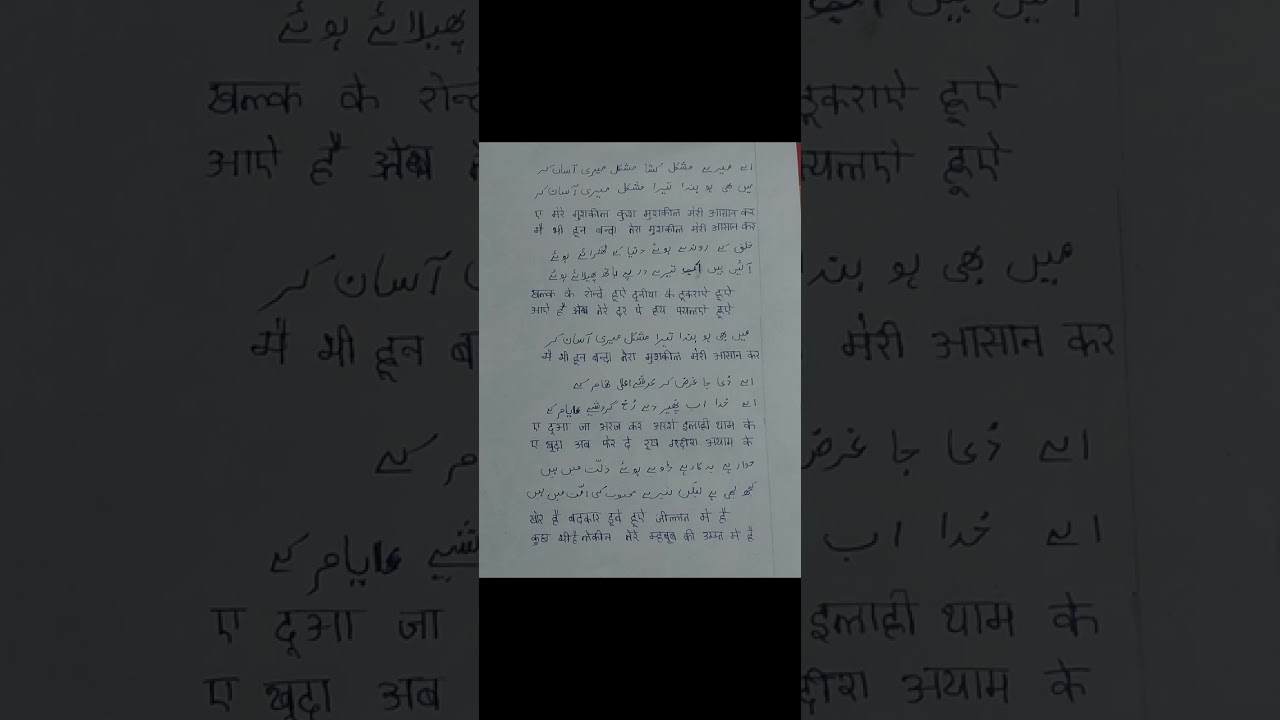 اے میرے مشکل کشا مشکل میری آسان کر
میں بھی ہو بندا تیرا مشکل میری آسان کر
ए मेरे मुशकील कुशा मुशकील मेरी आसान कर
मै भी हून बन्दा तेरा मुशकील मेरी आसान कर
خلق کے روندے ہوئے دنیا کے ٹھکرائے ہوئے
آئیں ہیں تیرے در پے ہاتھ پھیلائے ہوئے
खल्क के रोन्दे हूऐ दुनीया के ठूकराऐ हूऐ
आऐ है तेरे दर पे हाथ हूऐ
میں بھی ہو بندا تیرا مشکل میری آسان کر
मै भी हून बन्दा तेरा मुशकील मेरी आसान कर
اے دُعا جا عرض کر الہی تھام کے
اے خدا اب پھیر دے رُخ گردشے ایام کے
ए दूआ जा अरज कर अरशे इलाही थाम के
ए खूदा अब फेर दे रूख गरदीश अयाम के
خوار ہے بدکار ہے ڈوبے ہوئے ذلّت میں ہیں
کچھ بھی ہے لیکن تیرے محبوب کی امّت میں ہیں
खार है बदकार डूबे हूऐ जील्लत मे है
कुछ भी है लेकीन तेरे महबूब की उम्मत मे है